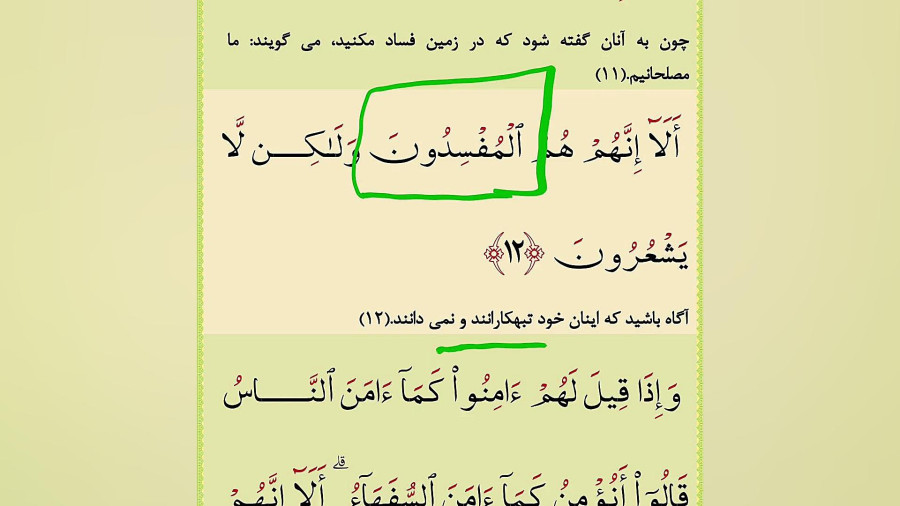 چون به آنان گفته شود که در زمین فساد مکنید، می گویند: ما
مصلحانیم.(۱۱)
أَلَآ إِنَّهُمْ هُمُ ٱلْمُفْسِدُونَ وَلَـٰكِن لَّا
يَشْعُرُونَ ﴿١٢﴾
آگاه باشید که اینان خود تبهکارانند و نمی دانند.(۱۲)
وَإِذَا قِيلَ لَهُمْ ءَامِنُوا۟ كَمَآ ءَامَنَ ٱلنَّاسُ
قَالُوٓا۟ أَنُؤْمِنُ كَمَآ ءَامَنَ ٱلسُّفَهَآءُ ۗ أَلَآ إِنَّهُمْ